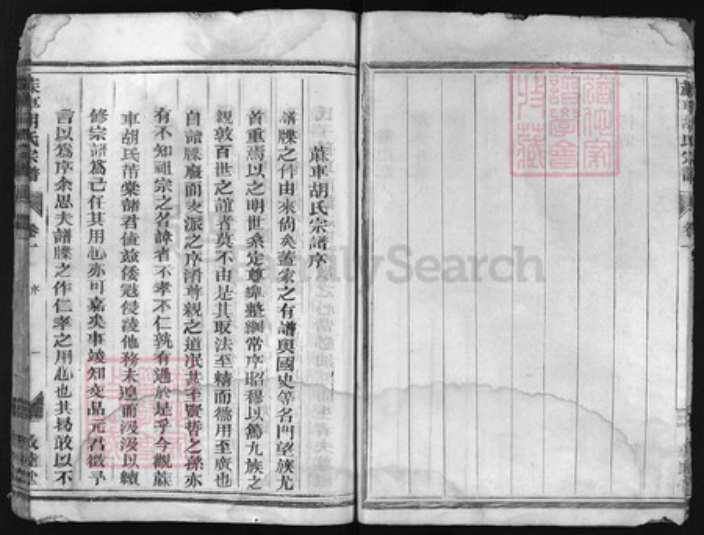 蔴車胡氏宗譜序
譜牒之作由來尚矣蓋家之有譜與國史等名門望族尤
首重焉以之明世系定尊卑整綱常序昭穆以篤九族之
親敦百世之誼者莫不由是其取法至精而為用至廣也
自譜牒廢而支派之序淆尊親之道泯甚至賢哲之孫亦
有不知祖宗之名諱者不孝不仁孰有過於是乎今觀蔴
車胡氏芾棠諸君值茲倭寇侵凌他務未遑而汲汲以續
修宗譜為己任其用心亦可嘉矣事竣知交品元君徵予
言以為序余思夫譜牒之作仁孝之用心也其曷敢以不
蔴車胡氏宗譜
卷一
序
一
敦睦堂
FamilySearch